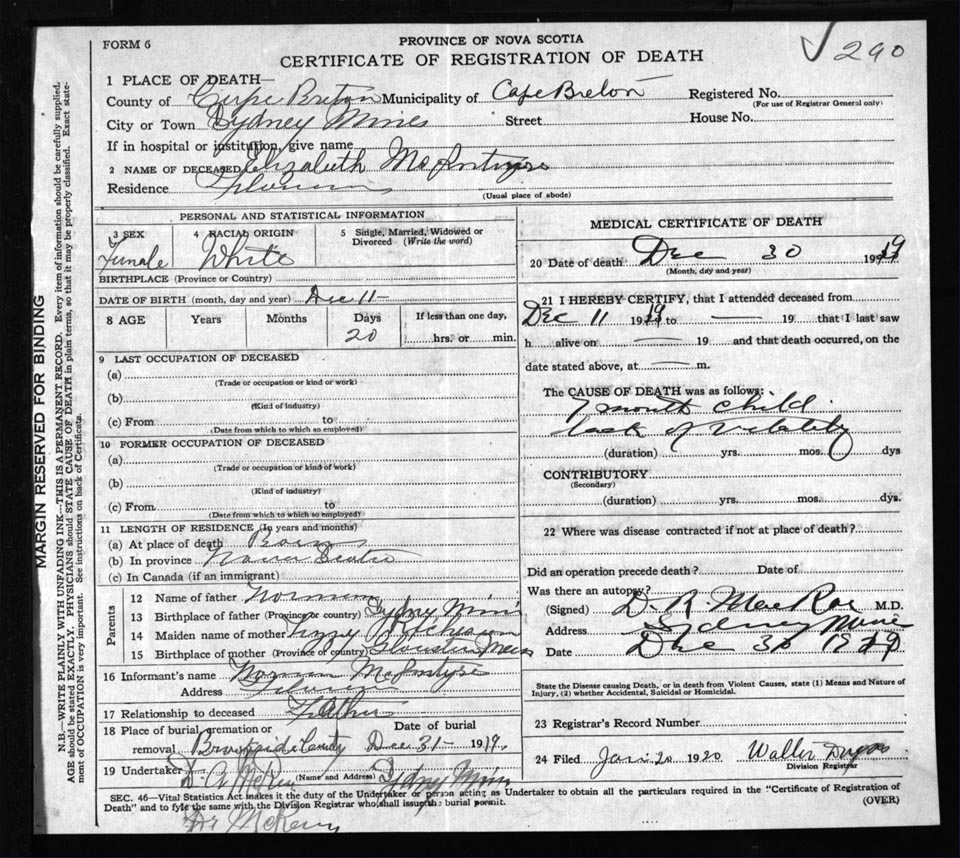 FORM 6
PROVINCE OF NOVA SCOTIA
290
CERTIFICATE OF REGISTRATION OF DEATH
1 PLACE OF DEATH—
County of Cape Breton Municipality of Cape Breton Registered No.
(For use of Registrar General only)
City or Town Sydney Mines Street House No.
If in hospital or institution, give name
2 NAME OF DECEASED Elizabeth McIntyre
Residence Florence
(Usual place of abode)
PERSONAL AND STATISTICAL INFORMATION
3 SEX 4 RACIAL ORIGIN 5 Single, Married, Widowed or Divorced (Write the word)
Female White
BIRTHPLACE (Province or Country)
DATE OF BIRTH (month, day and year) Dec 11-
8 AGE Years Months Days If less than one day,
20 hrs. or min.
9 LAST OCCUPATION OF DECEASED
(a)
(Trade or occupation or kind or work)
(b)
(Kind of industry)
(c) From to
(Date from which to which so employed)
10 FORMER OCCUPATION OF DECEASED
(a)
(Trade or occupation or kind of work)
(b)
(Kind of industry)
(c) From to
(Date from which to which so employed?)
11 LENGTH OF RESIDENCE (In years and months)
(a) At place of death Born
(b) In province Nova Scotia
(c) In Canada (if an immigrant)
Parents
12 Name of father Norman
13 Birthplace of father (Province or country) Sydney Mines
14 Maiden name of mother
15 Birthplace of mother (Province or country) Mass
16 Informant's name Norman McIntyre
Address Florence
17 Relationship to deceased Father
18 Place of burial, cremation or removal Date of burial
Dec 31- 1919
19 Undertaker (Name and Address) Sydney Mines
MEDICAL CERTIFICATE OF DEATH
20 Date of death Dec 30 1919
(Month, day and year)
21 I HEREBY CERTIFY, that I attended deceased from
Dec 11 1919 to — 19 that I last saw
h alive on — 19 and that death occurred, on the
date stated above, at — m.
The CAUSE OF DEATH was as follows:
7 month child
lack of vitality
(duration) yrs. mos. dys
CONTRIBUTORY
(Secondary)
(duration) yrs. mos. dys.
22 Where was disease contracted if not at place of death?
Did an operation precede death? Date of
Was there an autopsy?
(Signed) D. R. MacRae M.D.
Address Sydney Mines
Date Dec 30 1919
State the Disease causing Death, or in death from Violent Causes, state (1) Means and Nature of
Injury, (2) whether Accidental, Suicidal or Homicidal.
23 Registrar's Record Number
24 Filed Jan 20 1920 Walter
Division Registrar
SEC. 46—Vital Statistics Act makes it the duty of the Undertaker or person acting as Undertaker to obtain all the particulars required in the "Certificate of Registration of
Death" and to fyle the same with the Division Registrar who shall issue the burial permit.
(OVER)
MARGIN RESERVED FOR BINDING
N.B.—WRITE PLAINLY WITH UNFADING INK—THIS IS A PERMANENT RECORD. Every item of information should be carefully supplied.
AGE should be stated EXACTLY. PHYSICIANS should STATE CAUSE OF DEATH in plain terms, so that it may be properly classified. Exact state-
ment of OCCUPATION is very important. See instructions on back of Certificate.